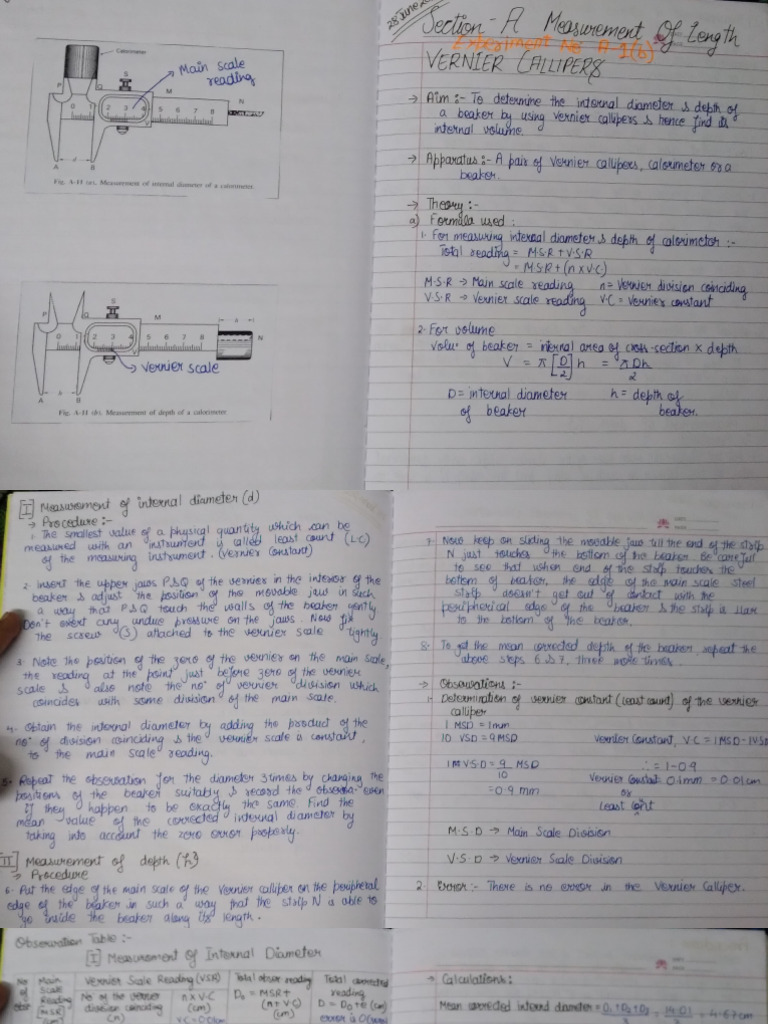 Calorimeter
Main scale
reading
P
Q
S
M
N
0 1 2 3 4 5 6 7 8
A
d
B
Fig. A-1† (a). Measurement of internal diameter of a calorimeter.
P
Q
S
M
h
N
0 1 2 3 4 5 6 7 8
Vernier scale
A
B
Fig. A-1† (b). Measurement of depth of a calorimeter
28 June
Section-A Measurement Of Length
Experiment No A-1(b)
VERNIER CALLIPERS
→ Aim :- To determine the internal diameter & depth of
a beaker by using vernier callipers & hence find its
internal volume.
→ Apparatus :- A pair of vernier callipers, calorimeter or a
beaker.
→ Theory :-
a) Formula used :
1. For measuring internal diameter & depth of calorimeter :-
Total reading = M.S.R + V.S.R
= M.S.R + (n x V.C)
M.S.R → Main scale reading n = Vernier division coinciding
V.S.R → Vernier scale reading V.C = Vernier constant
2. For volume
Volu. of beaker = internal area of cross-section x depth
V = π [D/2] h = πDh/2
D = internal diameter h = depth of
of beaker beaker.
[I] Measurement of internal diameter (d)
→ Procedure :-
1. The smallest value of a physical quantity which can be
measured with an instrument is called least count (L.C)
of the measuring instrument. (Vernier Constant)
2. Insert the upper jaws P & Q of the vernier in the interior of the
beaker & adjust the position of the movable jaw in such
a way that P & Q touch the walls of the beaker gently
Don't exert any undue pressure on the jaws. Now fix
the screw (S) attached to the vernier scale tightly
3. Note the position of the zero of the vernier on the main scale,
the reading at the point just before zero of the vernier
scale & also note the no. of vernier division which
coincides with some division of the main scale.
4. Obtain the internal diameter by adding the product of the
no. of division coinciding & the vernier scale is constant,
to the main scale reading.
5. Repeat the observation for the diameter 3 times by changing the
positions of the beaker suitably & record the observa. even
if they happen to be exactly the same. Find the
mean value of the corrected internal diameter by
taking into account the zero error properly.
[II] Measurement of depth (h)
→ Procedure
6. Put the edge of the main scale of the Vernier calliper on the peripheral
edge of the beaker in such a way that the strip N is able to
go inside the beaker along its length.
7. Now keep on sliding the movable jaw till the end of the strip
N just touches the bottom of the beaker. Be careful
to see that when end of the strip touches the
bottom of beaker, the edge of the main scale steel
strip doesn't get out of contact with the
peripherical edge of the beaker & the strip is llar
to the bottom of the beaker.
8. To get the mean corrected depth of the beaker, repeat the
above steps 6 & 7, three more times.
→ Observations :-
1. Determination of vernier constant (least count) of the vernier
calliper
1 MSD = 1mm
10 VSD = 9 MSD Vernier Constant, V.C = 1 MSD - 1VSD
V.S.D = 9/10 MSD ∴ = 1-0.9
= 0.9 mm Vernier Constant 0.1mm = 0.01cm
or
Least count
M.S.D → Main Scale Division
V.S.D → Vernier Scale Division
2. Error :- There is no error in the Vernier Calliper.
Observation Table :-
[I] Measurement of Internal Diameter
No of obs Main Scale Reading (MSR) (cm) Vernier Scale Reading (VSR) Total obser reading Total corrected
No of the vernier division coinciding (n) n x V.C (cm) D₀ = MSR + (n + VC) (cm) reading D = D₀ + e (cm)
V.C = 0.01cm error is 0
→ Calculations :
Mean corrected internal diameter = D₁ + D₂ + D₃ = 14.01 = 4.67 cm